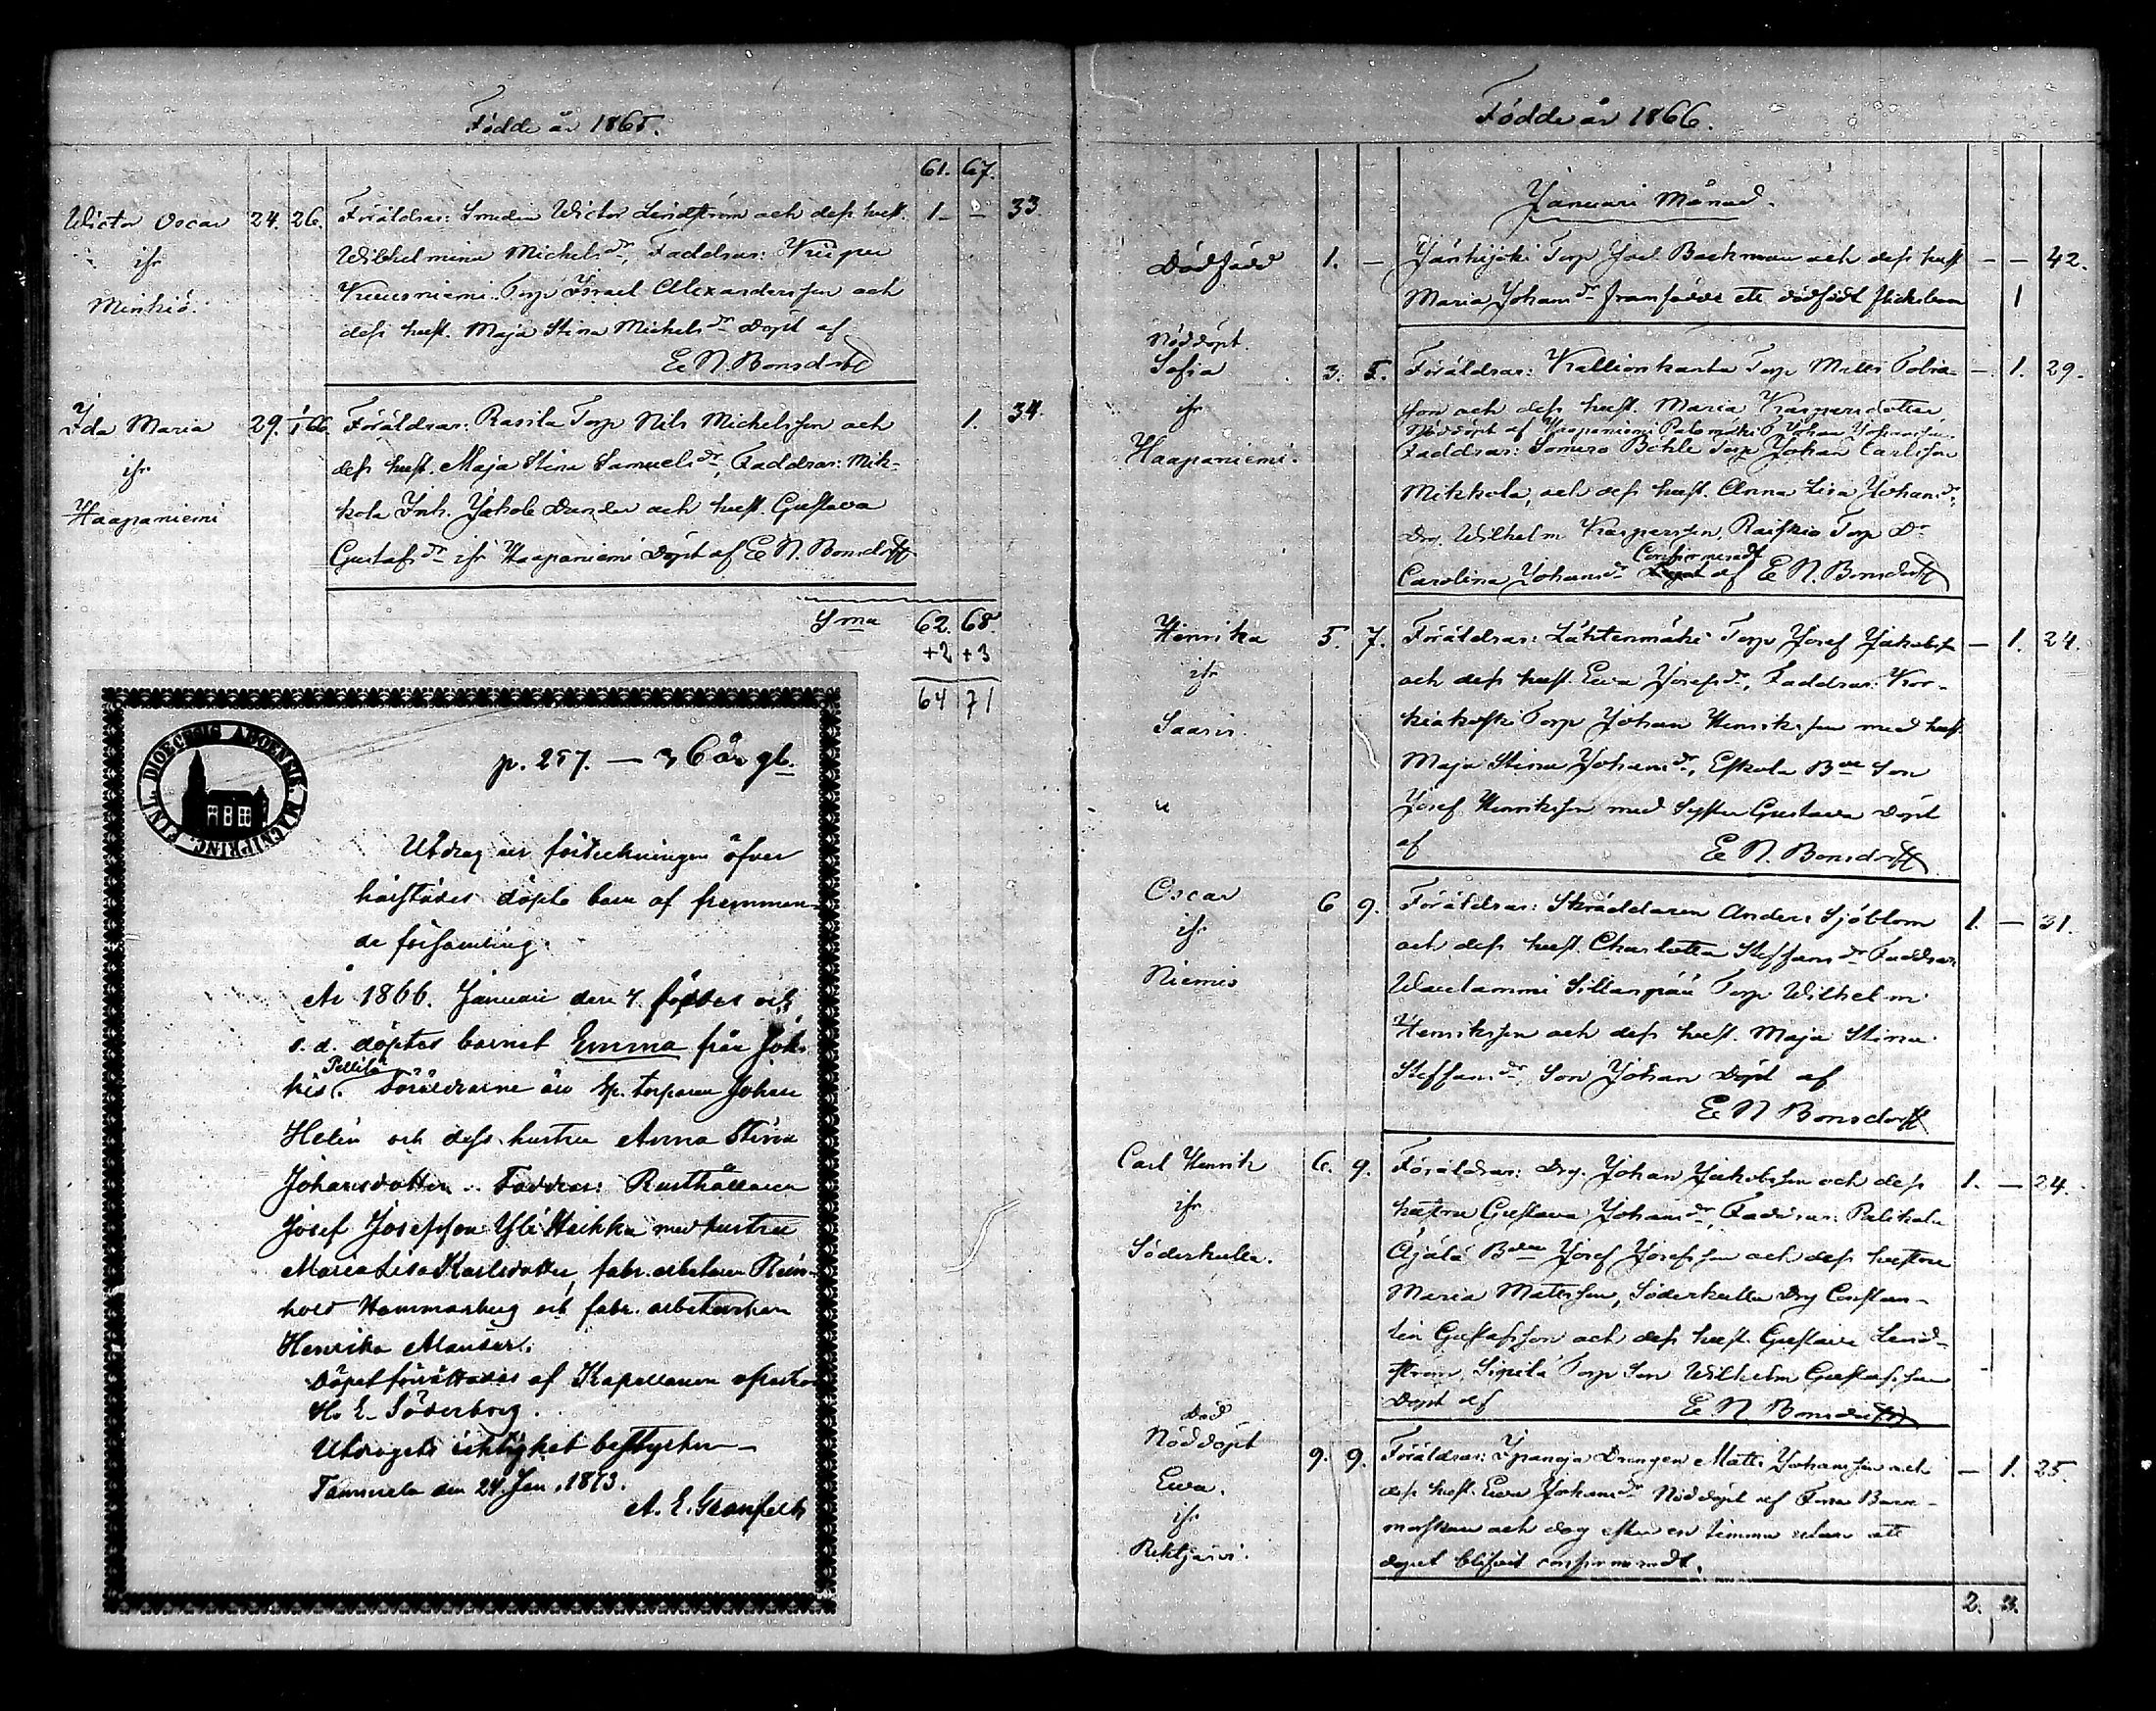 Födde år 1865.
61. 67.
Wictor Oscar 24. 26. Föräldrar: Smeden Wictor Lindström och dess hust. 1 - - 33.
ifr Wilhelmina Michelsdr, Faddrar:
Minkiö. Torp Israel Alexandersson och
dess hust. Maja Stina Michelsdr Döpt af
E. N. Bonsdorff
Ida Maria 29. 1/66. Föräldrar: Rasila Torp Nils Michelsson och 1. 34.
ifr dess hust. Maja Stina Samuelsdr, Faddrar: Mik-
Haapaniemi kola Inh. Jakob Dunder och hust. Gustava
Gustafsdr ifr Haapaniemi Döpt af E. N. Bonsdorff
Sma 62. 68.
+2 +3
64 71
DIOECESIS ABOENSIS MAGNI PRINC. FINL.
p. 257. — 36 år gl.
Utdrag ur förteckningen öfver
härstädes döpte barn af fremman-
de församling.
År 1866. Januari den 4. föddes och
s. d. döptes barnet Emma från Jok-
Pellilä
kis. Föräldrarne äro Sp. torparen Johan
Helin och dess hustru Anna Stina
Johansdotter. Faddrar: Rusthållaren
Josef Josefsson Yli Heikka med hustru
Maria Lisa Karlsdotter, fabr. arbetaren Rein-
hold Hammarberg och fabr. arbeterskan
Henrika Mander.
Döpet förrättades af Kapellanen
H. E. Söderborg.
Utdragets riktighet bestyrker
Tammela den 24. Jan. 1873.
A. E. Granfelt
Födde år 1866.
Januari Månad.
Dödfödd 1. - Torp Joel Backman och dess hust - - 42.
Maria Johansdr framfödde ett dödfödt flickebarn 1
Nöddöpt.
Sofia 3. 5. Föräldrar: Kallionkanta Torp Matts Tobia- - 1. 29.
ifr son och dess hust. Maria Kaspersdotter
Nöddöpt af Haapaniemi Palomäki Johan
Haapaniemi. Faddrar: Somero Böhle Torp Johan Carlsson
Mikkola, och dess hust. Anna Lisa Johansdr,
Drg. Wilhelm Kaspersson, Raiskio Torp Dr
Confirmeradt
Carolina Johansdr Döpt af E. N. Bonsdorff
Henrika 5. 7. Föräldrar: Lähtenmäki Torp Josef Jakobss. - 1. 24.
ifr och dess hust. Ewa Josefsdr, Faddrar: Kor-
Saaris kiakoski Torp Johan Henriksson med hust.
Maja Stina Johansdr, Eskola Bde Son
Josef Henriksson med Syster Gustava Döpt
af E. N. Bonsdorff
Oscar 6 9. Föräldrar: Skräddaren Anders Sjöblom 1. - 31.
ifr och dess hust. Charlotta Steffansdr Faddrar:
Niemis Wautammi Sillanpää Torp Wilhelm
Henriksson och dess hust. Maja Stina
Steffansdr, Son Johan Döpt af
E. N. Bonsdorff
Carl Henrik 6. 9. Föräldrar: Drg. Johan Jakobsson och dess 1. - 24.
ifr hustru Gustava Johansdr, Faddrar:
Söderkulla. Äjälä Bden Josef Josefsson och dess hustru
Maria Matsson, Söderkulla Drg Constan-
tin Gustafsson och dess hust. Gustava Lind-
ström, Sipilä Torp Son Wilhelm Gustafsson
Döpt af E. N. Bonsdorff
Död
Nöddöpt 9. 9. Föräldrar: Ypäjä Drängen Matts Johansson och - 1. 25.
Ewa. dess hust. Ewa Johansdr Nöddöpt af Barn-
ifr morskan och dog efter en timma utan att
dopet blifvit confirmeradt.
2. 3.